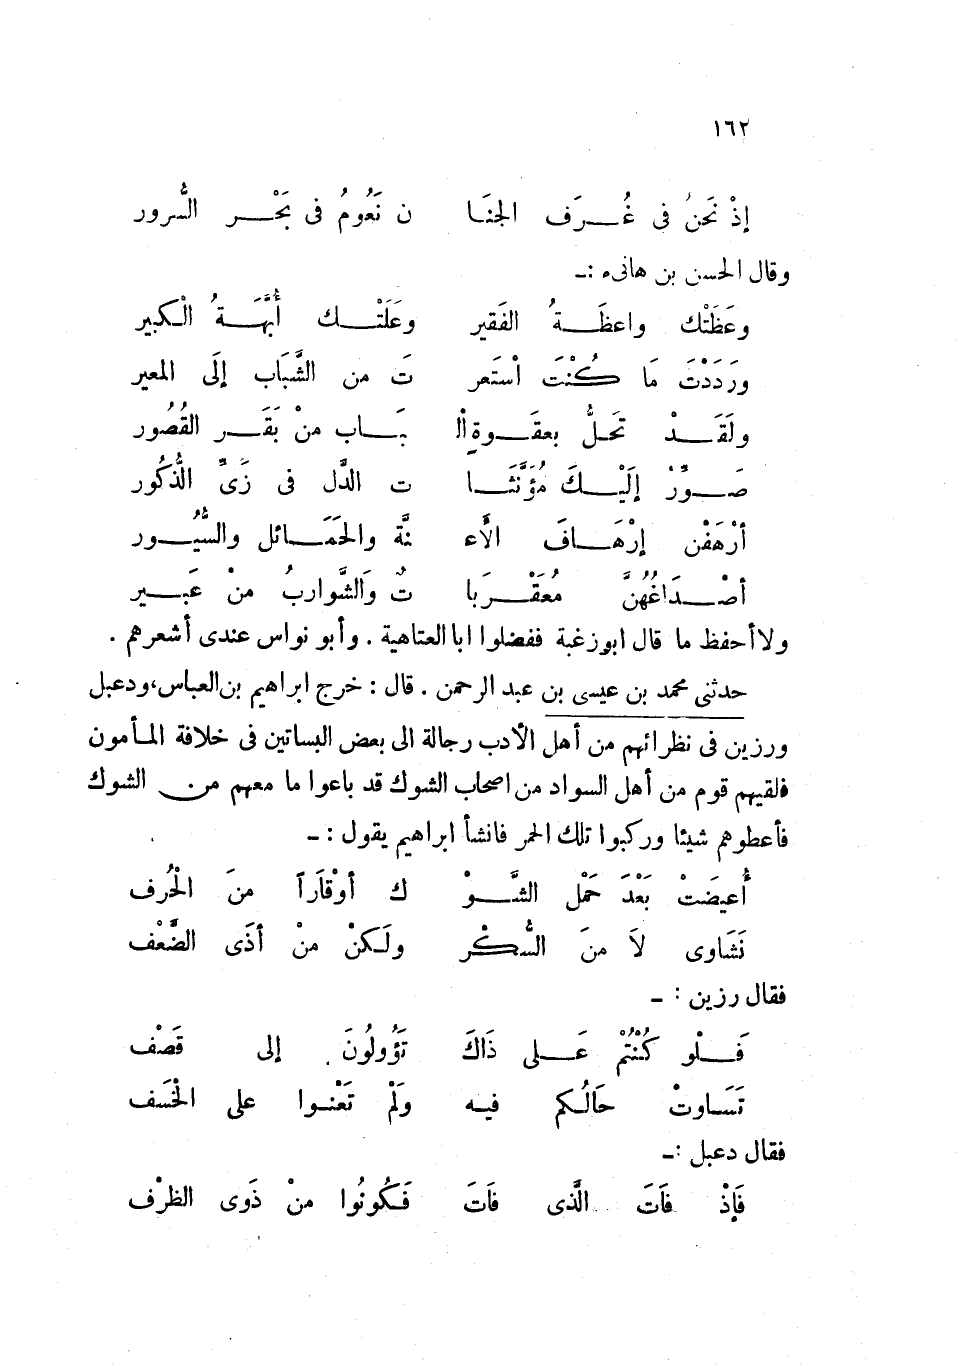 ١٦٢
إذْ نَحنُ فى غُرَف الجنَا ن نَعُومُ فى بَحْر السُّرور
وقال الحسن بن هانىء :ـ
وعَظَتْك واعظَةُ الفَقير وعَلَتْك أُبَّهَةُ الْكبير
ورَدَدْتَ مَا كُنْتَ أسْتَعر تَ من الشَّبَاب إلَى المعير
ولَقَدْ تَحَلُّ بعقَوةِ الْ بَاب منْ بَقَر القُصُور
صَوِّرْ إلَيْكَ مُؤَنَّثَا ت الدَّل فى زَىِّ الذُّكُور
أرْهَفْن إرْهَافَ الأَء نَّة والحَمَائل والسُّيُور
أصْدَاغُهُنَّ مُعَقْرَبا تٌ وَالشَّواربُ منْ عَبير
ولاأحفظ ما قال ابوزغبة ففضلوا ابا العتاهية . وأبو نواس عندى أشعرهم .
حدثنى محمد بن عيسى بن عبد الرحمن . قال : خرج ابراهيم بن العباس، ودعبل
ورزين فى نظرائهم من أهل الأدب رجالة الى بعض البساتين فى خلافة المأمون
فلقيهم قوم من أهل السواد من اصحاب الشوك قد باعوا ما معهم من الشوك
فأعطوهم شيئا وركبوا تلك الحمر فانشأ ابراهيم يقول : ـ
أُعيضَتْ بَعْدَ حَمْل الشَّوْ ك أوْقَاراً منَ الْحُرف
نَشَاوى لاَ منَ السُّكْر ولَكنْ منْ أذَى الضَّعْف
فقال رزين : ـ
فَلو كُنْتُمْ عَلى ذَاكَ تَؤُولُونَ إلى قَصْف
تَسَاوتْ حَالُكم فيه ولَمْ تَعْنوا على الخَسْف
فقال دعبل :ـ
فَإذْ فَاتَ الَّذى فَاتَ فَكُونُوا منْ ذَوى الظرْف